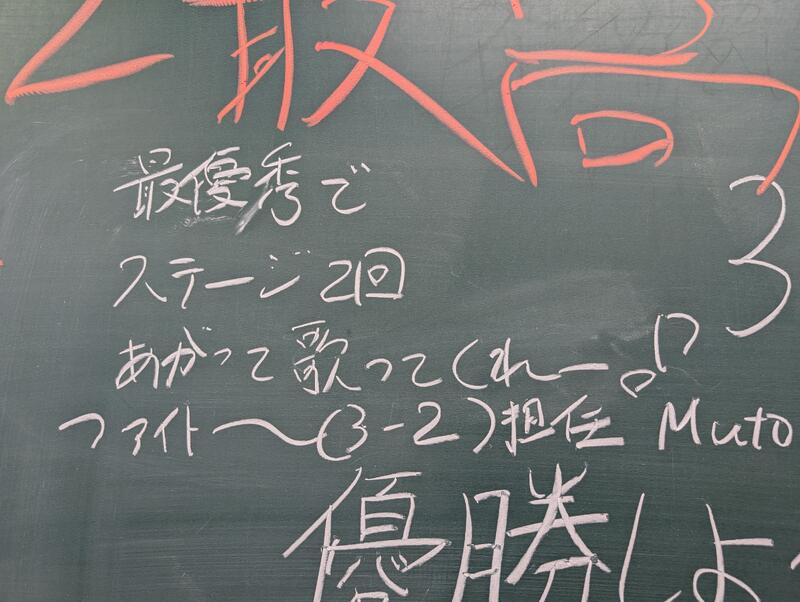 最高
最優秀で
ステージ2回
3
あがって歌ってくれー!?
ファイト〜(3-2)担任 Muto
優勝しよ